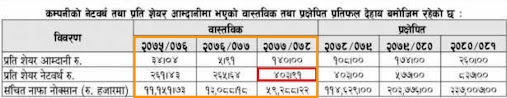 कम्पनीको नेटवर्थ तथा प्रति शेयर आम्दानीमा भएको वास्तविक तथा प्रक्षेपित प्रतिफल देहाय बमोजिम रहेको छ :
विवरण वास्तविक प्रक्षेपित
२०७५/०७६ २०७६/०७७ २०७७/०७८ २०७८/०७९ २०७९/०८० २०८०/०८१
प्रति शेयर आम्दानी रु. ३४।०४ ५।९१ १४०।०० १०८।०० १७४।०० २६०।००
प्रति शेयर नेटवर्थ रु. २६१।४३ २६५।६४ ४०३।९१ ४०३।०० ५७७।०० ८३७।००
संचित नाफा नोक्सान (रु. हजारमा) ११,१५१।७३ १३,०८८।९८ ५९,२८८।२२ ११४,६२९।०० २०३,७७६।०० ३३७,००७।००